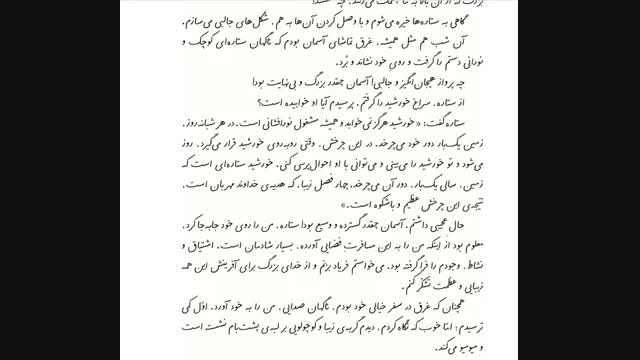 گاهی به ستاره‌ها خیره می‌شوم و با وصل کردن آن‌ها به هم، شکل‌های جالبی می‌سازم.
آن شب هم مثل همیشه، غرق تماشای آسمان بودم که ناگهان ستاره‌ای کوچک و
نورانی دستم را گرفت و روی خود نشاند و بُرد.
چه پرواز هیجان‌انگیز و جالبی! آسمان چقدر بزرگ و بی‌نهایت بود!
از ستاره، سراغ خورشید را گرفتم. پرسیدم آیا او خوابیده است؟
ستاره گفت: «خورشید هرگز نمی‌خوابد و همیشه مشغول نورافشانی است. در هر شبانه‌روز،
زمین یک‌بار دور خود می‌چرخد. در این چرخش، وقتی روبه‌روی خورشید قرار می‌گیرد، روز
می‌شود و تو خورشید را می‌بینی و می‌توانی با او احوال‌پرسی کنی. خورشید ستاره‌ای است که
زمین، سالی یک‌بار، دور آن می‌چرخد. چهار فصل زیبا، که هدیه‌ی خداوند مهربان است،
نتیجه‌ی این چرخش عظیم و باشکوه است.»
حال عجیبی داشتم. آسمان چقدر گسترده و وسیع بود! ستاره، من را روی خود جابه‌جا کرد.
معلوم بود از اینکه من را به این مسافرت فضایی آورده، بسیار شادمان است. اشتیاق و
نشاط، وجودم را فرا گرفته بود. می‌خواستم فریاد بزنم و از خدای بزرگ برای آفرینش این همه
زیبایی و عظمت تشکّر کنم.
همچنان که غرق در سفر خیالی خود بودم. ناگهان صدایی، من را به خود آورد. اوّل کمی
ترسیدم؛ امّا خوب که نگاه کردم، دیدم گربه‌ی زیبا و کوچولویی بر لبه‌ی پشت‌بام نشسته است
و میومیو می‌کند.